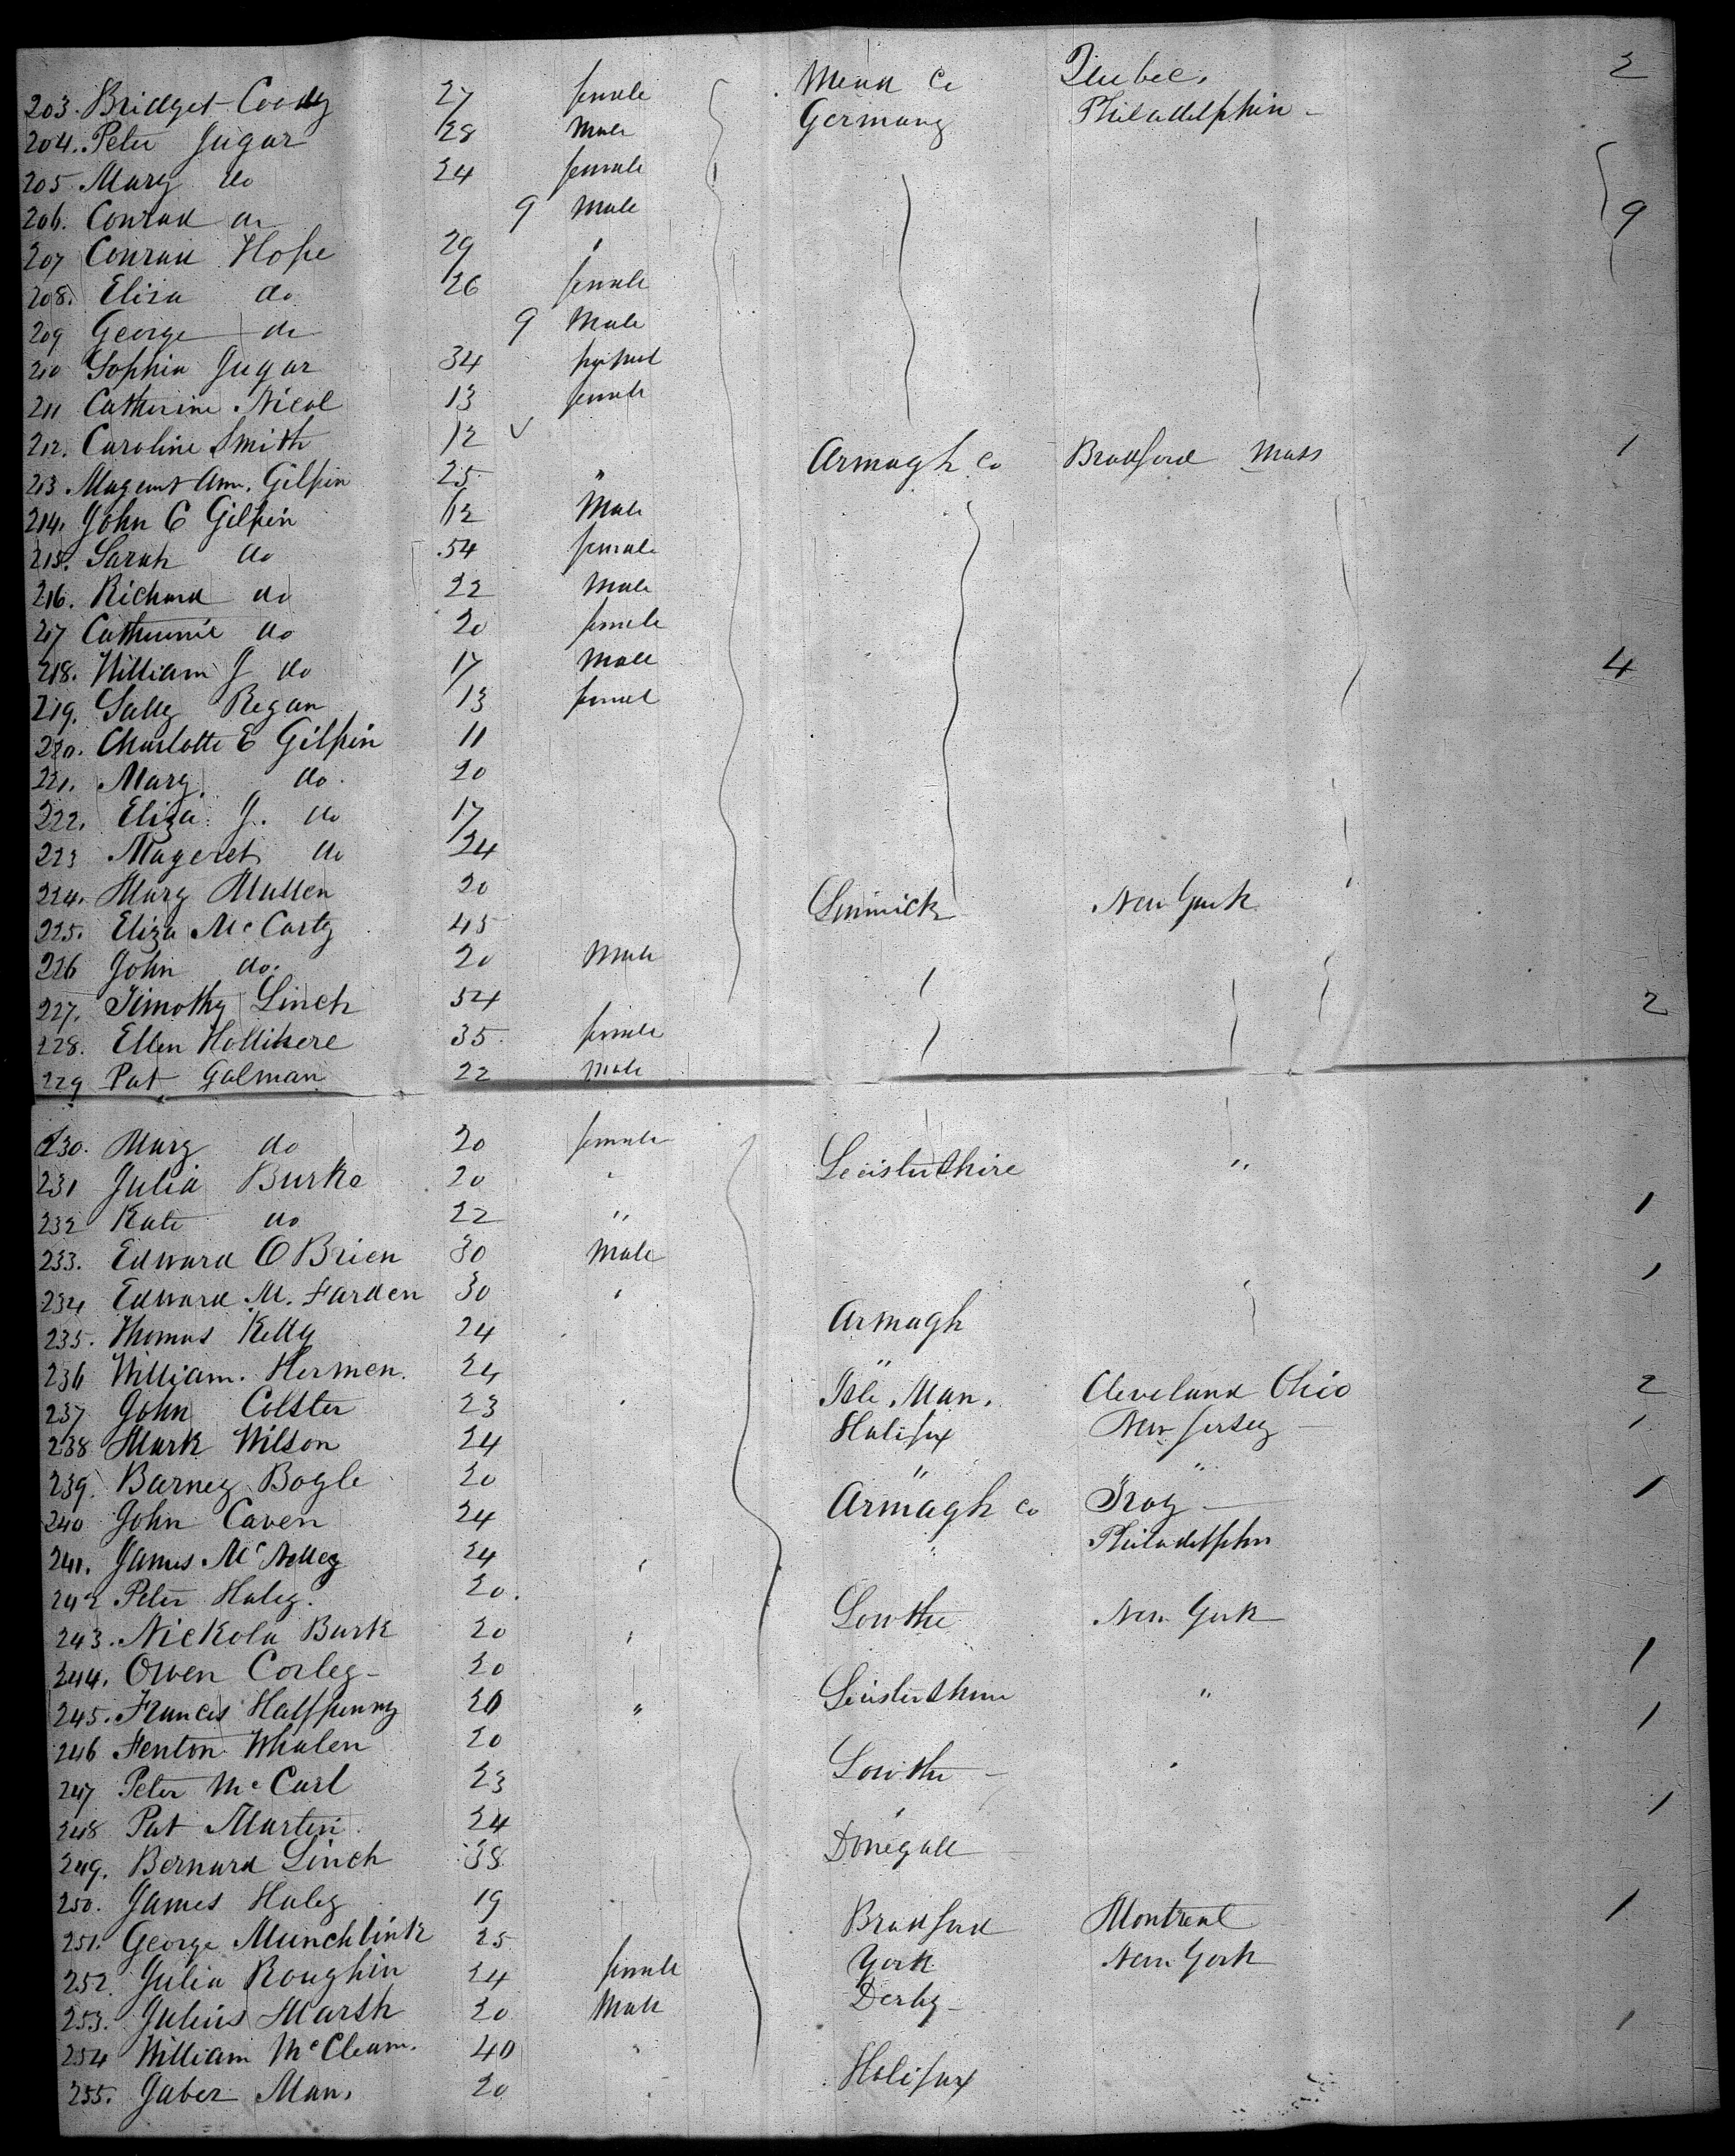 203. Bridget Coody 27 female Mead Co Quebec. 2
204. Peter Jugar 28 Male Germany Philadelphia -
205 Mary do 24 female
206. Conrad do 9 Male 9
207 Conrad Hope 29 "
208. Eliza do 26 female
209 George do 9 Male
210 Sophia Jugar 34 female
211 Catherine Nicol 13 female
212. Caroline Smith 12 ✓
213. Magaret Ann. Gilpin 25 " Armagh Co Bradford Mass 1
214. John C Gilpin 12 Male
215. Sarah do 54 female
216. Richard do 22 Male
217 Catherine do 20 female
218. William J do 17 Male 4
219. Sally Regan 13 femal
220. Charlotte E Gilpin 11
221. Mary do 20
222. Eliza J. do 17
223 Mageret do 24
224. Mary Mullen 20
225. Eliza McCarty 45 Limrick New York
226 John do. 20 Male
227. Timothy Linch 54 2
228. Ellen Hollikere 35 female
229 Pat Galman 22 Male
230. Mary do 20 female
231 Julia Burke 20 " Leistershire "
232 Kate do 22 " 1
233. Edward O Brien 30 Male
234 Edward M. Farden 30 " 1
235. Thomas Kelly 24 Armagh
236 William. Hermen. 24 "
237 John Colster 23 Isle Man. Cleveland Ohio 2
238 Mark Wilson 24 Halifax New Jersey 1
239. Barney Bogle 20 " "
240 John Caven 24 Armagh Co Troy 1
241. James Mc 24 " " Philadelphia
242 Peter Haley. 20.
243. Nickola Burk 20 " Lowthe New York
244. Owen Corley 20 1
245. Francis Halfpenny 20 " Leistershire "
246 Fenton Whalen 20 1
247 Peter McCarl 23 Lowthe "
248 Pat Martin 24 " 1
249. Bernard Linch 38 Donegall
250. James Haley 19
251. George Munchlink 25 Bradford Montreal 1
252. Julia Roughin 24 female York New York
253. Julius Marsh 20 Male Derby
254 William McCleam. 40 " 1
255. Jaber Man. 20 " Halifax